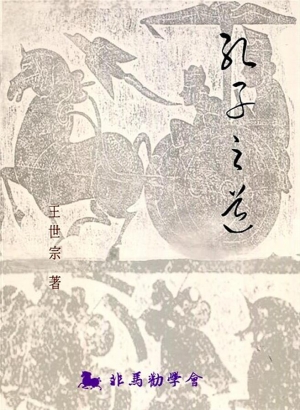 孔子之道
王世宗 著
非馬勒學會